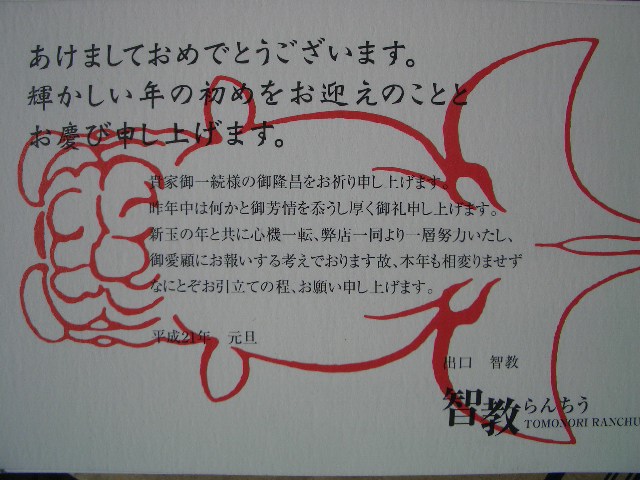 あけましておめでとうございます。
輝かしい年の初めをお迎えのことと
お慶び申し上げます。
貴家御一続様の御隆昌をお祈り申し上げます。
昨年中は何かと御芳情を忝うし厚く御礼申し上げます。
新玉の年と共に心機一転、弊店一同より一層努力いたし、
御愛顧にお報いする考えでおります故、本年も相変りませず
なにとぞお引立ての程、お願い申し上げます。
平成21年　元旦
出口　智教
智教らんちう
TOMONORI RANCHU